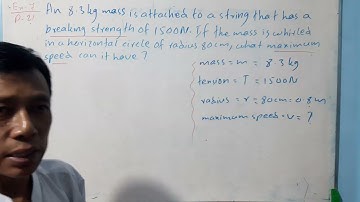 Ex-7 An 8.3kg mass is attached to a string that has a
P-21 breaking strength of 1500N. If the mass is whirled
in a horizontal circle of radius 80cm, what maximum
speed can it have?
mass = m = 8.3 kg
tension = T = 1500N
radius = r = 80cm = 0.8m
maximum speed = v = ?